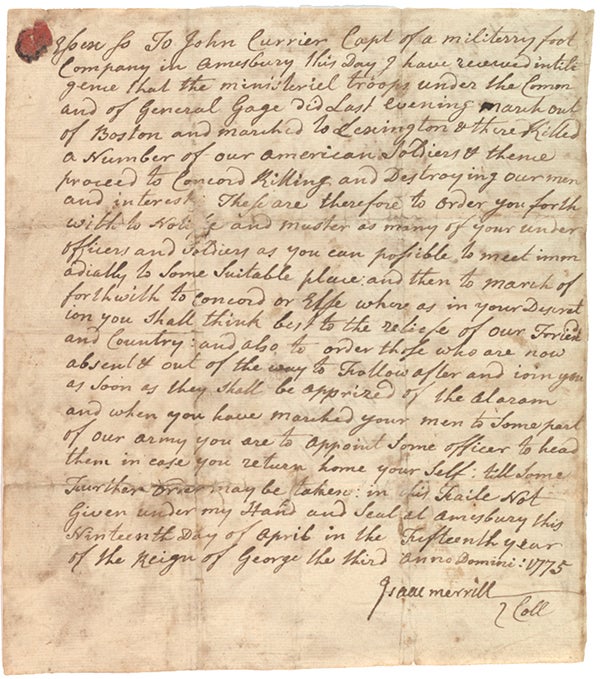 Essex ss To John Currier Capt of a militerry foot
Company in Amesbury this Day I have receved intili
gence that the ministeriel troops under the Comm
and of General Gage did Last evening march out
of Boston and marched to Lexington & there Killed
a Number of our American Soldiers & thence
proceed to Concord Killing and Destroying our men
and interest: These are therefore to order you forth
with to Notife and muster as many of your under
officers and Soldiers as you can possible to meet imm
adially to Some Suitable place: and then to march of
forthwith to Concord or Else where as in your Descret
ion you Shall think best to the reliefe of our Friend
and Country: and also to order those who are now
absent & out of the way to Follow after and ioin you
as soon as they shall be apprized of the Alaram
and when you have marched your men to Some part
of our army you are to appoint some officer to head
them in case you return home your Self: till Some
Further Order may be taken: in this Faile Not
Given under my Hand and Seal at Amesbury this
Ninteenth Day of April in the Fifteenth year
of the Reign of George the third Anno Domini: 1775
Isaac merrill
Coll